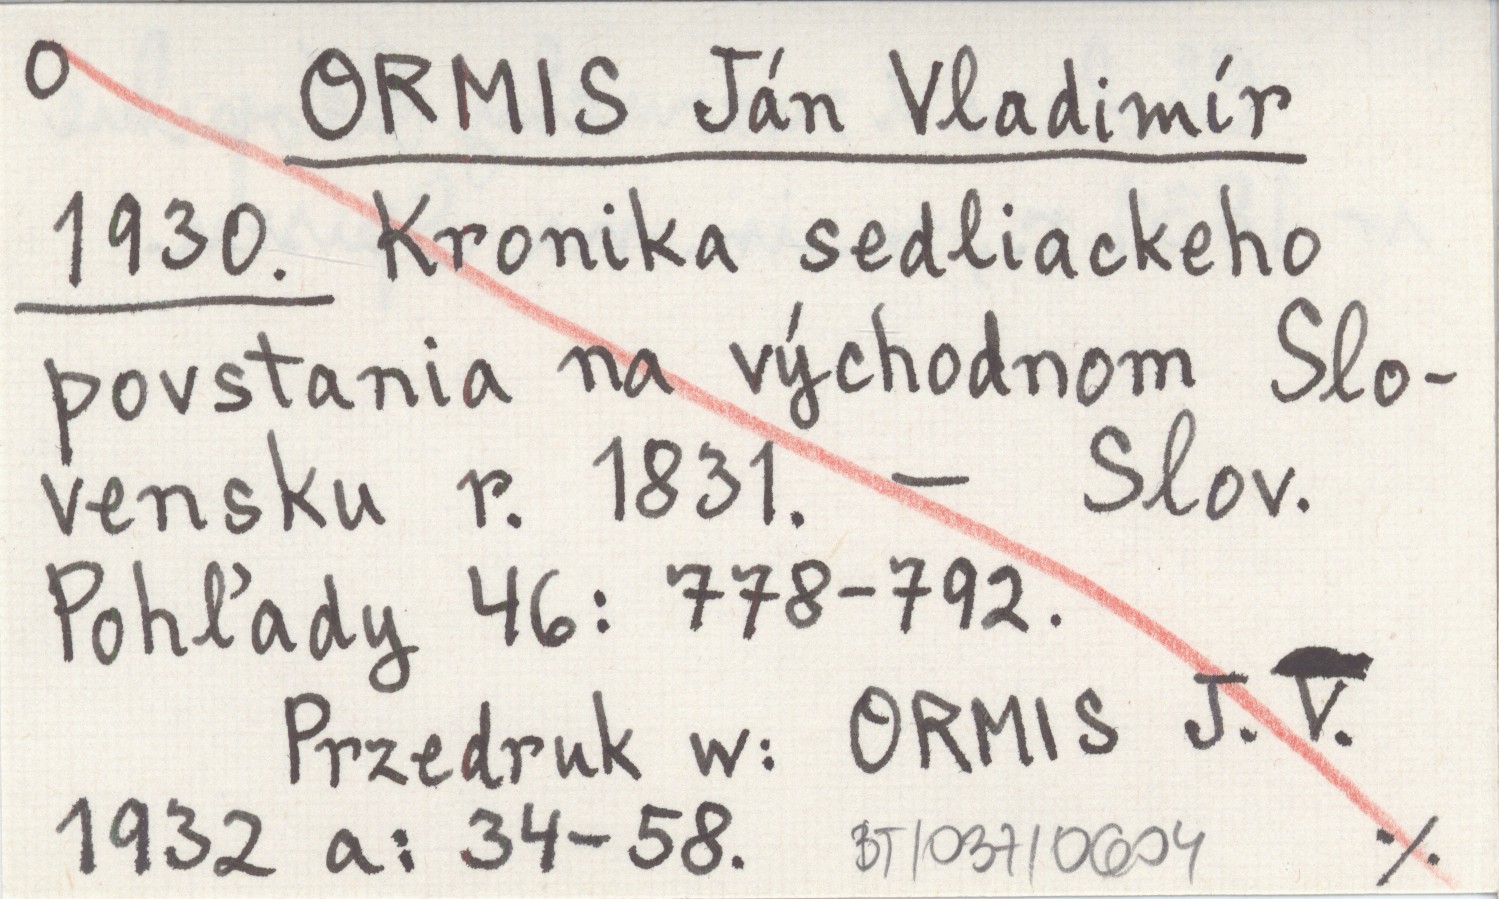 O ORMIS Ján Vladimír
1930. Kronika sedliackeho
povstania na východnom Slo-
vensku r. 1831. — Slov.
Pohľady 46: 778-792.
Przedruk w: ORMIS J. V.
1932 a: 34-58. BT/037/0604 ./.